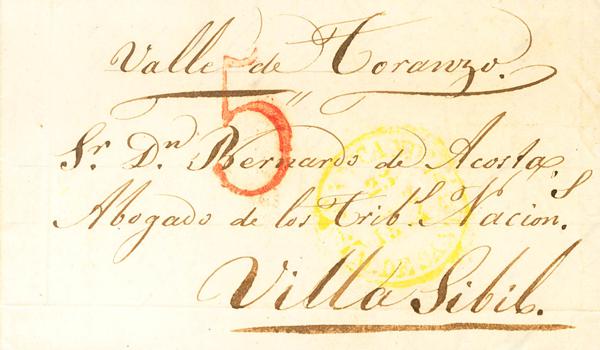 Valle de Toranzo.
5
Sr. Dn. Bernardo de Acosta
Abogado de los Tribs. Nacions.
Villa Sibil.